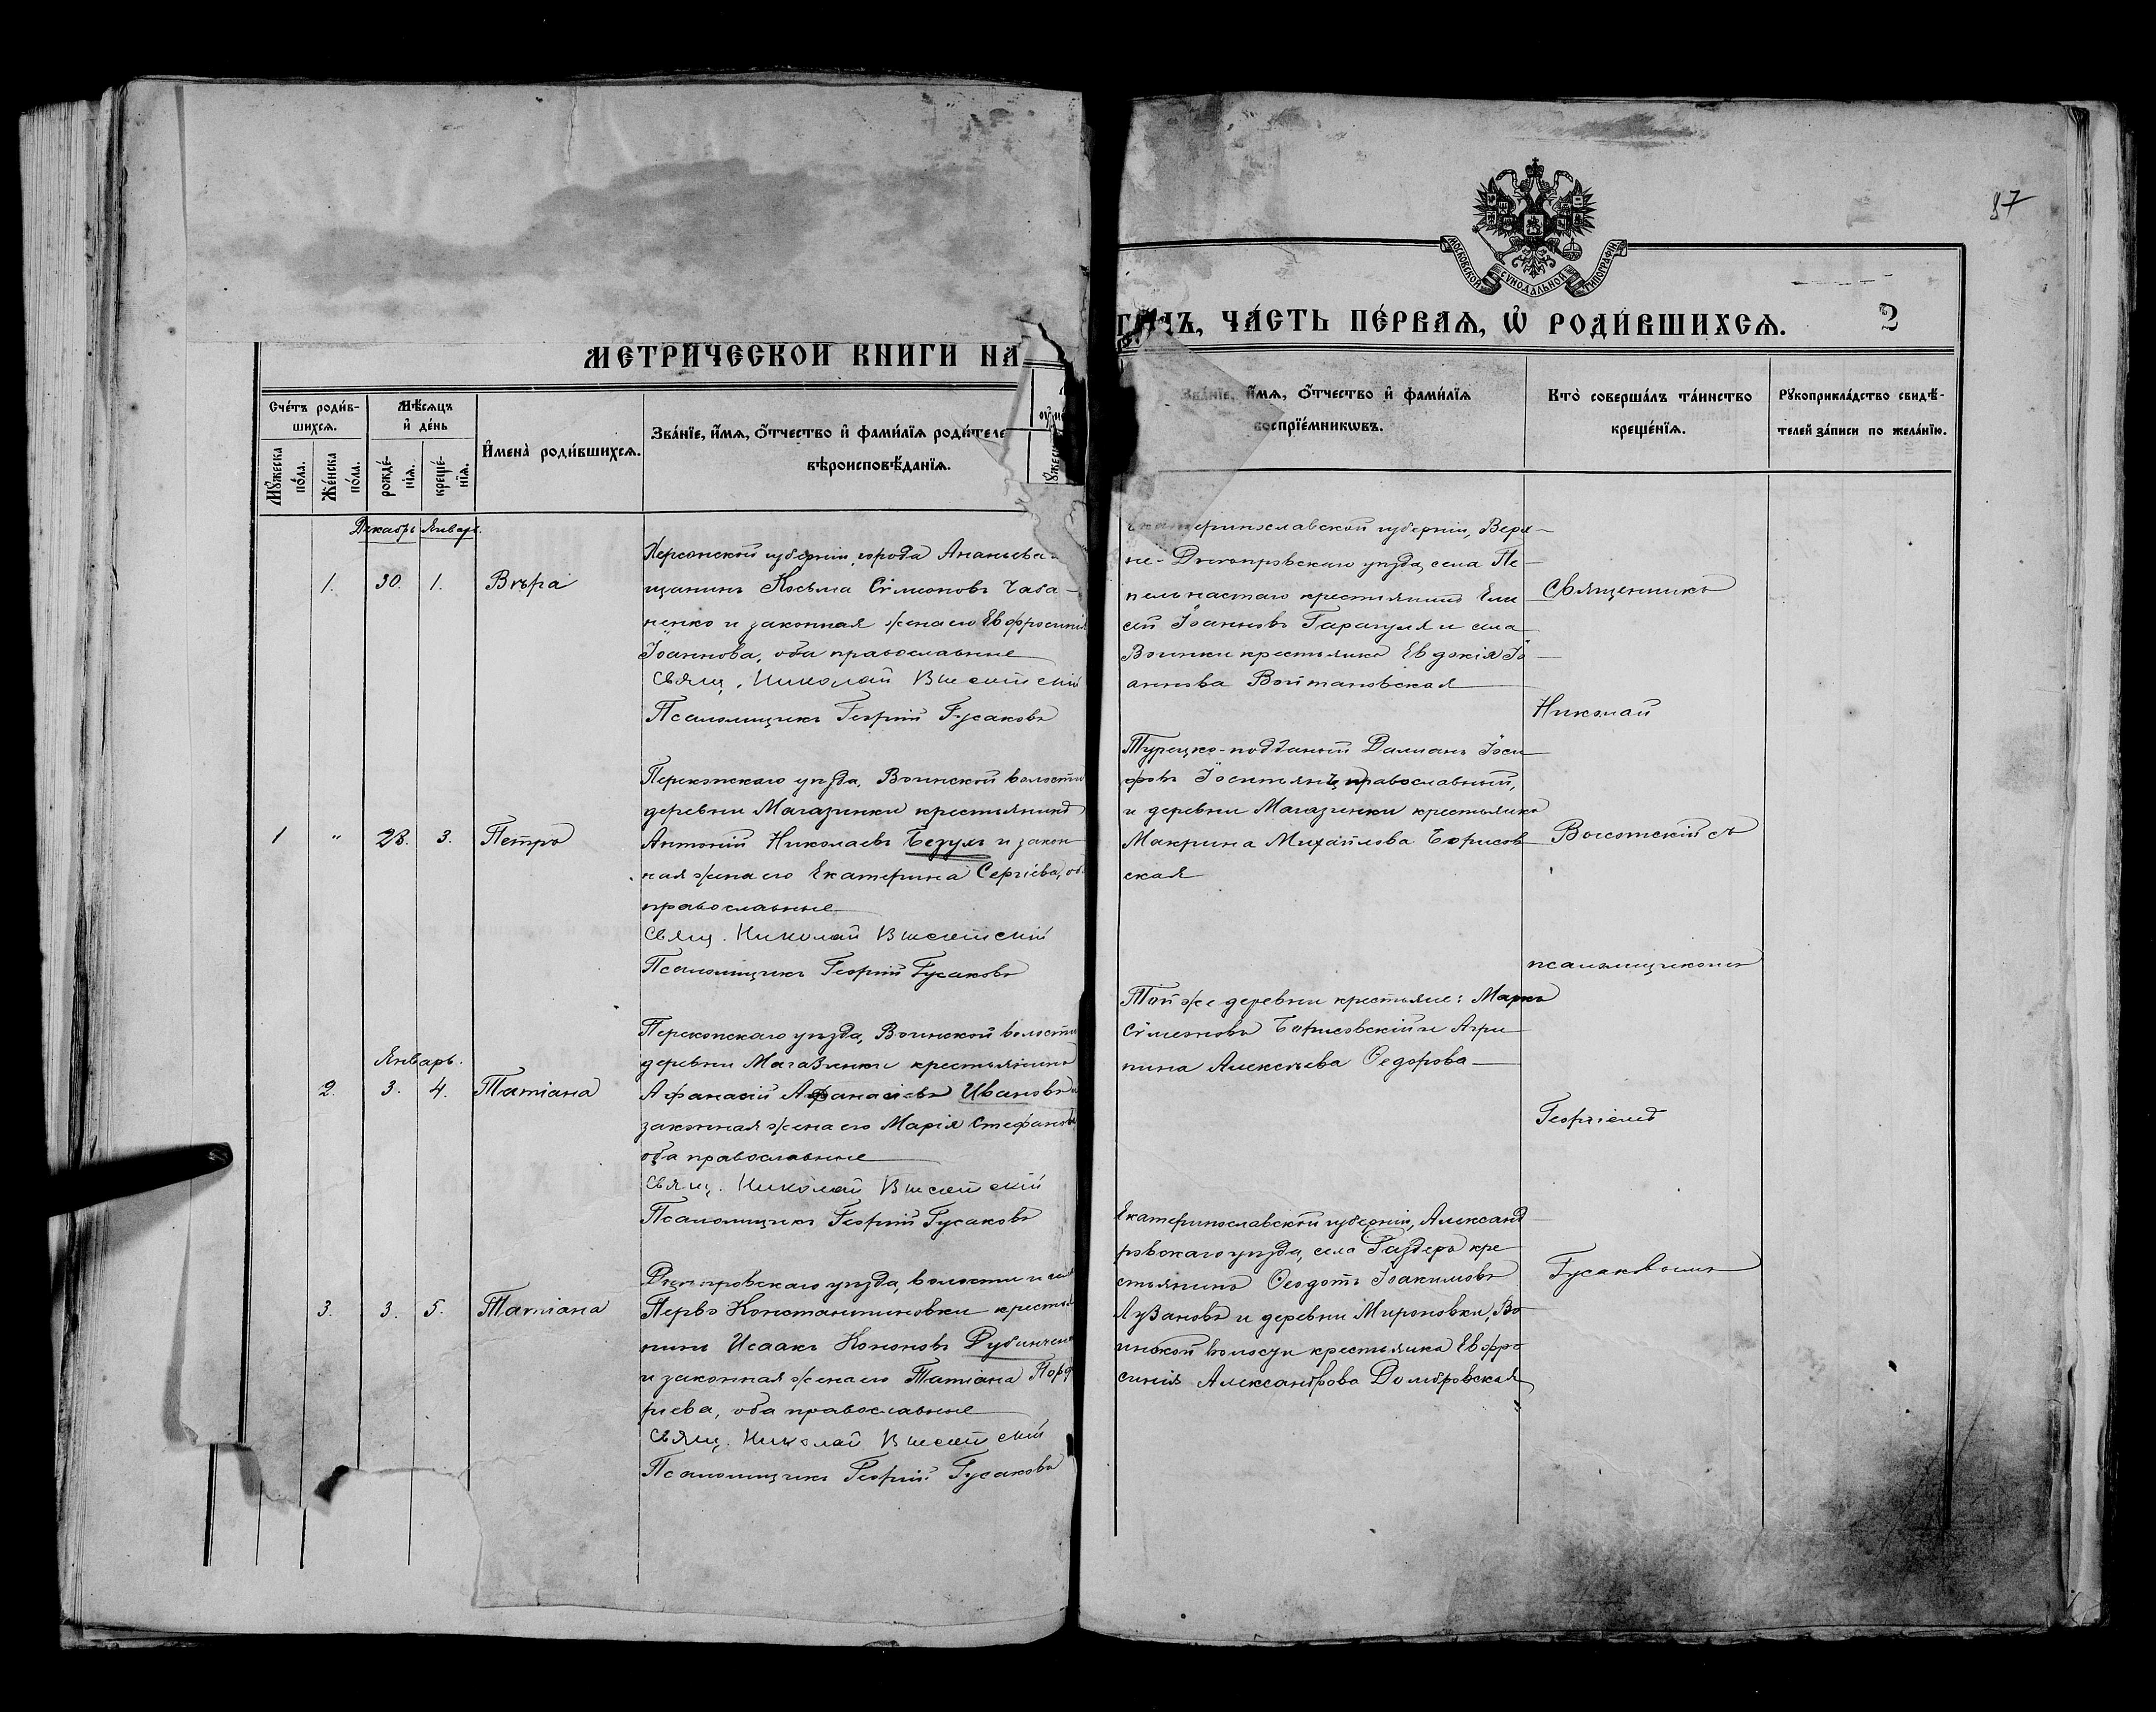 87
МОСКОВСКОЙ СѴНОДАЛЬНОЙ ТИПОГРАФІИ
МЕТРИ́ЧЕСКОЙ КНИГИ НА
ЧА́СТЬ ПЕ́РВАЯ, Ѡ҆ РОДИ́ВШИХСЯ.
2
Сче́тъ роди́в-
шихся.
Мѣ́сяцъ
и҆ де́нь
Мꙋ́жеска
по́ла.
Же́нска
по́ла.
рожде́-
нія.
креще́-
нія.
И҆мена̀ роди́вшихся.
Зва́нїе, и҆́мя, ѻ҆́тчество и҆ фами́лїя роди́теле
вѣроисповѣ́данїя.
Зва́нїе, и҆́мя, ѻ҆́тчество и҆ фами́лїя
воспрїе́мникѡвъ.
Кто̀ соверша́лъ та́инство
креще́нїя.
Рꙋкоприкла́дство свидѣ́-
телей за́писи по жела́нїю.
Декабрь Январ.
1. 30. 1. Вѣра
Херсонской губерніи, города Ананьева
щанинъ Косьма Сѵмеоновъ Чаба-
ненко и законная жена его Евфросинія
Іоаннова, оба православные
Свящ. Николай Высотскій
Псаломщикъ Георгій Гусаковъ
Екатеринославской губерніи, Верх-
не-Днепровскаго уѣзда, села
крестьянинъ Ели
сей Іоанновъ Гарагуля и села
Воинки крестьянка Евдокія Іо
аннова Войтановская
Священникъ
Николай
1 " 28. 3. Петръ
Перекопскаго уѣзда, Воинской волости
деревни Магазинки крестьянинъ
Антоній Николаевъ Безулъ и закон
ная жена его Екатерина Сергіева, об
православные
Свящ. Николай Высотскій
Псаломщикъ Георгій Гусаковъ
Турецко-подданый Даміанъ Іоси
фовъ православный,
и деревни Магазинки крестьянка
Макрина Михайлова Борисов
ская
Высотскій съ
псаломщикомъ
Январь.
2. 3. 4. Татіана
Перекопскаго уѣзда, Воинской волости
деревни Магазинки крестьянинъ
Афанасій Афанасіевъ Ивановъ и
законная жена его Марія Стефанов
оба православные
Свящ. Николай Высотскій
Псаломщикъ Георгій Гусаковъ
Той же деревни крестьяне: Маркъ
Сѵмеоновъ Борисовскій и Агри
пина Алексѣева Ѳедорова
Георгіемъ
3. 3. 5. Татіана
Днепровскаго уѣзда, волости и сел
Перво Константиновки крестья
нинъ Исаакъ Кононовъ Дубинчен
и законная жена его Татіана Порф
ріева, оба православные
Свящ. Николай Высотскій
Псаломщикъ Георгій Гусаковъ
Екатеринославской губерніи, Александ
ровскаго уѣзда, села Раздеръ кре
стьянинъ Ѳеодотъ Іоакимовъ
Лузановъ и деревни Мироновки, Во
инской волости крестьянка Евфро
синія Александрова Домбровская
Гусаковымъ